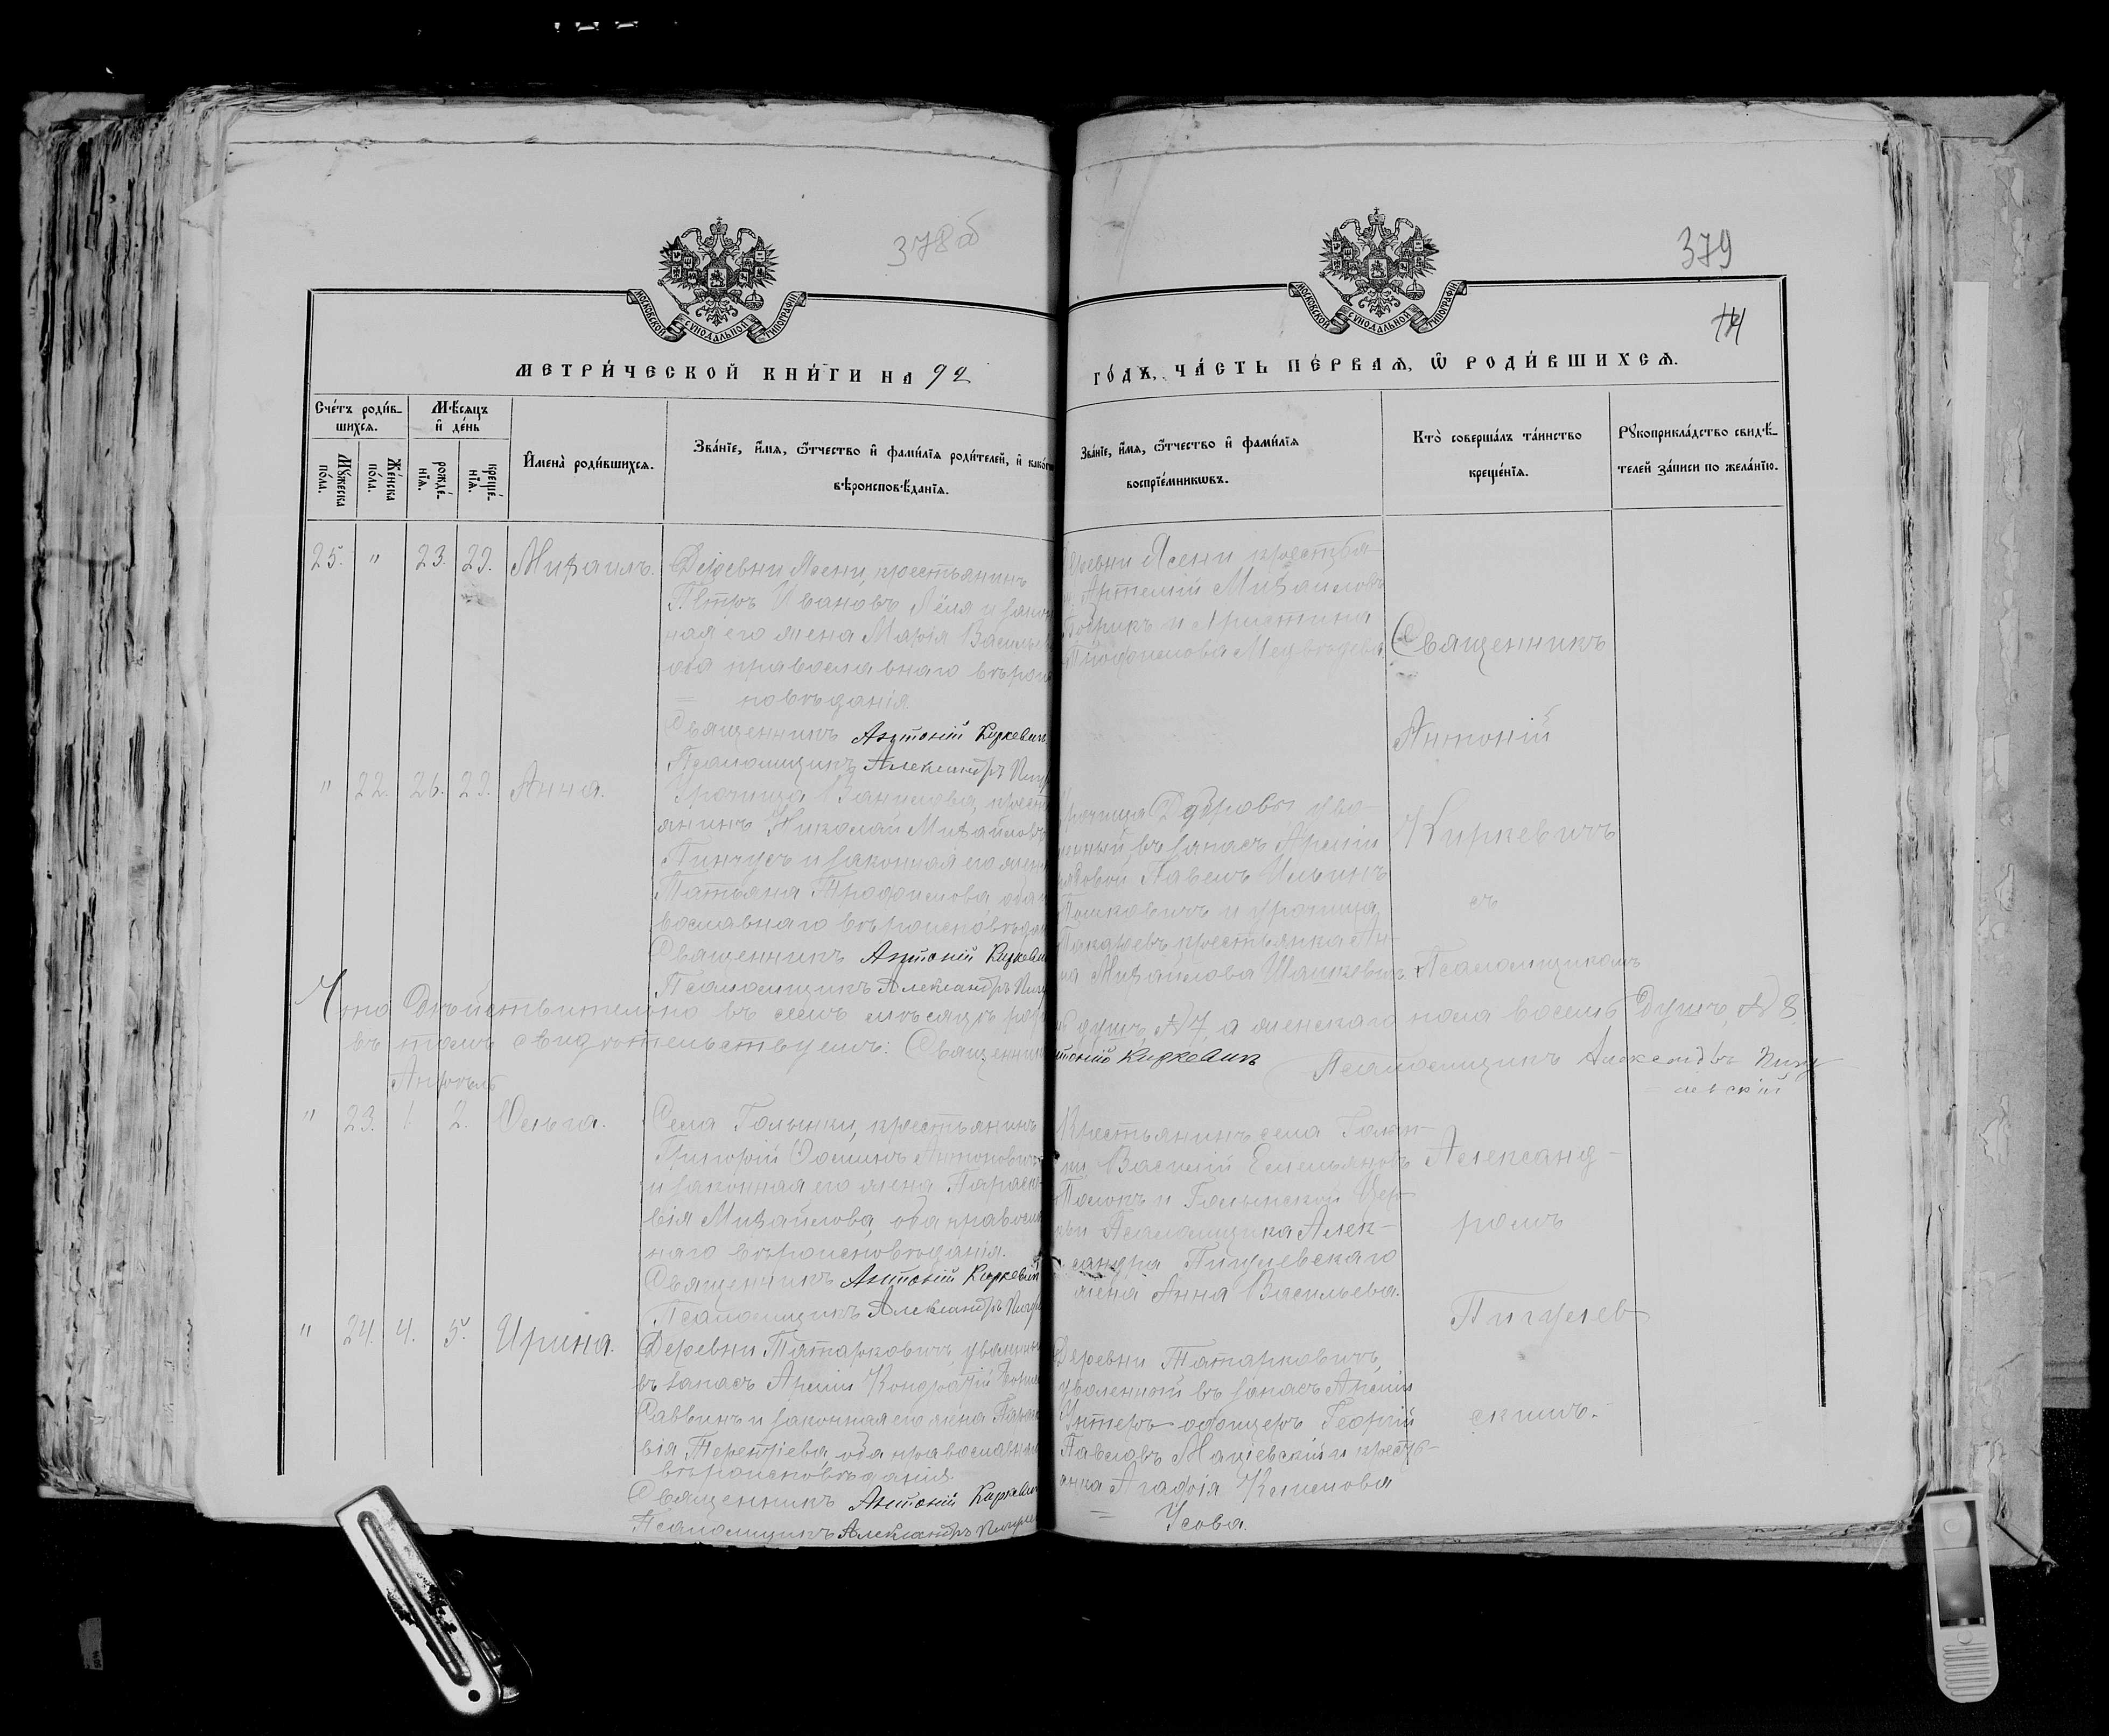 378 об
379
МОСКОВСКОЙ СѴНОДАЛЬНОЙ ТИПОГРАФІИ
МОСКОВСКОЙ СѴНОДАЛЬНОЙ ТИПОГРАФІИ
МЕТРИ́ЧЕСКОЙ КНИ́ГИ НА 92
ГО́ДЪ, ЧА́СТЬ ПЕ́РВАЯ, Ѿ РОДИ́ВШИХСЯ.
Сче́тъ роди́в-
шихся.
Му́жеска по́ла.
Же́нска по́ла.
Мѣ́сяцъ
и҆ де́нь
рожде́-
нїя.
креще́-
нїя.
И҆мена̀ роди́вшихся.
Зва́нїе, и҆́мя, ѻ҆́тчество и҆ фами́лїя роди́телей, и҆ како́гѡ
вѣроисповѣ́данїя.
Зва́нїе, и҆́мя, ѻ҆́тчество и҆ фами́лїя
воспрїе́мникѡвъ.
Кто̀ соверша́лъ та́инство
креще́нїя.
Рꙋкоприкла́дство свидѣ́-
телей за́писи по жела́нїю.
25. " 23. 29. Михаилъ.
Деревни Ясени, крестьянинъ
Петръ Ивановъ Лёля и закон
ная его жена Марія Василье
оба православнаго вѣроис
= повѣданія
Священникъ Антоній Киркевичъ
Псаломщикъ Александръ Пигу
Деревни Ясени крестья-
Артемій Михаиловъ
и Христина
Священникъ
Антоній
Киркевичъ
съ
Псаломщикомъ
" 22. 26. 29. Анна.
Урочища крест
янинъ Николай Михайловъ
Пинчукъ и законная его жена
Татьяна Трофимова оба
вославнаго вѣроисповѣдан
Священникъ Антоній Киркевич
Псаломщикъ Александръ Пигу
Урочища Дубровы уво-
ленный въ запасъ Арміи
рядовой Павелъ Ильинъ
и урочища
крестьянка Ан-
на Михайлова
Что дѣйствительно въ семъ мѣсяцѣ душъ, № 7, а женскаго пола восемь душъ, № 8.
въ томъ свидѣтельствуемъ: Священник Антоній Киркевичъ Псаломщикъ Александръ Пигу
= левскій
Апрѣль
" 23. 1 2. Ольга.
Села Голынки, крестьянинъ
Григорій Антоновичъ
и законная его жена Параске
вія Михайлова, оба православ
наго вѣроисповѣданія.
Священникъ Антоній Киркевич
Псаломщикъ Александръ Пигу
Крестьянинъ села Голын-
ки Василій Емельяновъ
и Голынской Цер
кви Псаломщика Алек-
сандра Пигулевскаго
жена Анна Васильева.
Александ-
ромъ
Пигулев
скимъ.
" 24. 4. 5. Ирина.
Деревни Татарковичъ, уволенны
въ запасъ Арміи Кондратій
Саввинъ и законная его жена
вія Терентіева, оба православна
вѣроисповѣданія
Священникъ Антоній Киркевич
Псаломщикъ Александръ Пигуле
Деревни Татарковичъ,
уволенный въ запасъ Арміи
Унтеръ офицеръ Георгій
Павловъ Мацкевскій и кресть-
янка Агафія
= Усова.